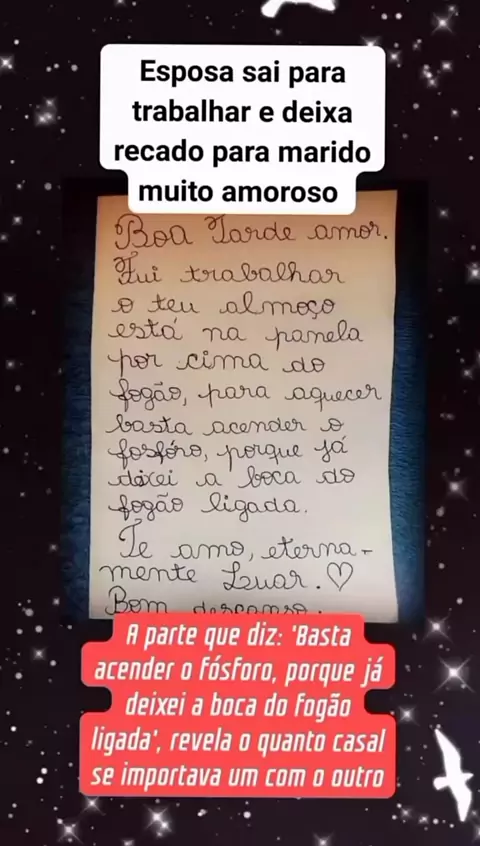 Esposa sai para
trabalhar e deixa
recado para marido
muito amoroso
Boa Tarde amor.
Fui trabalhar
o teu almoço
está na panela
por cima do
fogão, para aquecer
basta acender o
fosfóro, porque já
deixei a boca do
fogão ligada.
Te amo, eterna-
mente Luar. ♡
Bom descanso.
A parte que diz: 'Basta
acender o fósforo, porque já
deixei a boca do fogão
ligada', revela o quanto casal
se importava um com o outro